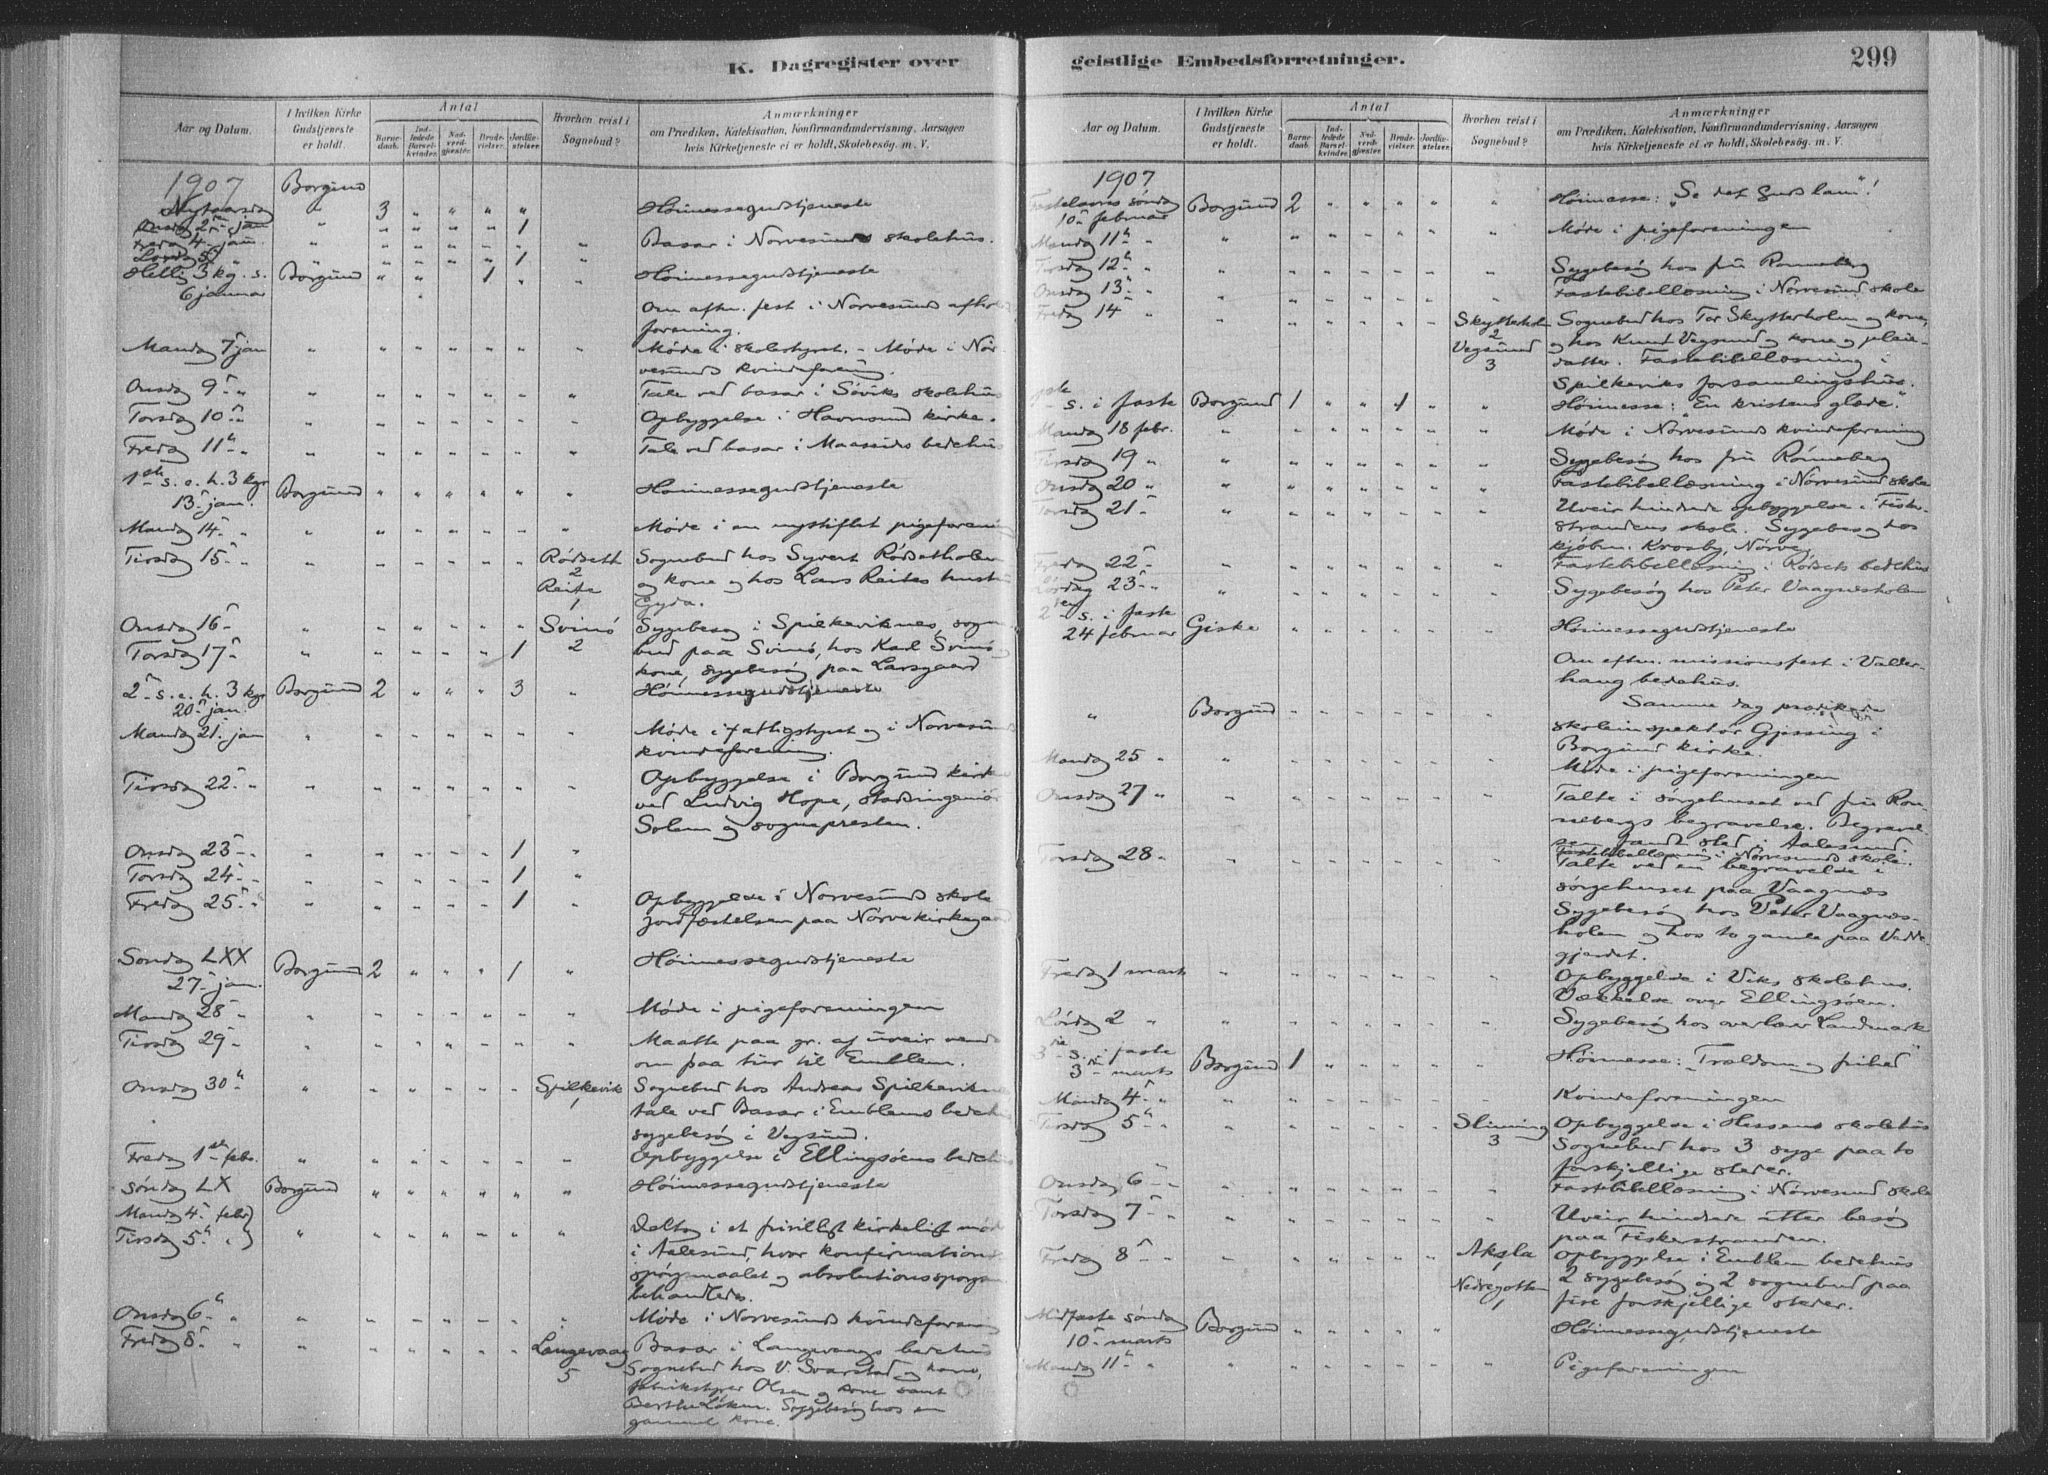 K. Dagregister over
geistlige Embedsforretninger.
299
Aar og Datum.
I hvilken Kirke Gudstjeneste er holdt.
Antal
Barnedaab.
Indledede Barselkvinder.
Nadverdgjæster.
Brudevielser.
Jordfæstelser.
Hvorhen reist i Sognebud?
Anmærkninger
om Prædiken, Katekisation, Konfirmandundervisning, Aarsagen
hvis Kirketjeneste ei er holdt, Skolebesøg. m. V.
1907 Borgund
Nytaarsdag " 3 " " " " Høimessegudstjeneste
Onsdag 2 jan " " " " " 1
Fredag 4 jan. " " " " " " " Basar i Nørvesund skolehus.
Lørdag 5 " " " " " " 1 "
Hellig 3 kg. s. Borgund " " 1 " " Høimessegudstjeneste
6 januar
Om aften. fest i Nørvesund afholds
forening.
Mandag 7 jan " " " " " " " Møde i skolestyret. - Møde i Nør-
vesunds kvindeforening.
Onsdag 9 " " " " " " " " Tale ved basar i Søviks skolehus
Torsdag 10 " " " " " " " Opbyggelse i Havnsund kirke.
Fredag 11 " " " " " " " " Tale ved basar i Maaseides bedehus
1ste s. e. h. 3 kgr
13 jan. Borgund " " " " " " Høimessegudstjeneste
Mandag 14 " " " " " " " " Møde i en nystiftet pigeforening
Tirsdag 15 " " " " " " " Rødseth Sognebud hos Syvert Rødsetholen
2 og kone og hos Lars Reites hustru
Reite Gyda.
1
Onsdag 16 " " " " " " Svinø Sygebesøg i Spilkeviknes, sogne-
Torsdag 17 " " " " " 1 2 bud paa Svinø, hos Karl Svinø
kone, sygebesøg paa Larsgaard
2 s. e. h. 3 kgr Borgund 2 " " " 3 " Høimessegudstjeneste
20 jan.
Mandag 21 jan " " " " " " " Møde i fattigstyret og i Nørvesunds
kvindeforening.
Tirsdag 22 " " " " " " " " Opbyggelse i Borgund kirke
ved Ludvig Hope, stadsingeniør
Solem og sognepresten.
Onsdag 23 " " " " " " 1 "
Torsdag 24 " " " " " " 1 "
Fredag 25 " " " " " " 1 " Opbyggelse i Nørvesund skole
jordfæstelsen paa Nørve kirkegaard
Søndag LXX
27 jan. Borgund 2 " " " 1 " Høimessegudstjeneste
Mandag 28 " " " " " " " Møde i pigeforeningen
Tirsdag 29 " " " " " " " Maatte paa gr. af uveir vende
om paa tur til Emblem.
Onsdag 30 " " " " " " Spilkevik Sognebud hos Andreas Spilkeviknes
1 tale ved Basar i Emblems bedehus
sygebesøg i Vegsund.
Fredag 1ste febr. " " " " " " " Opbyggelse i Ellingsøens bedehus
Søndag LX Borgund " " " " " " Høimessegudstjeneste
Mandag 4 febr }
Tirsdag 5 " } " " " " " " " Deltog i et frivilligt kirkeligt møde
i Aalesund, hvor konfirmations-
spørgsmaalet og absolutionsspørgsm.
behandledes.
Onsdag 6 " " " " " " " " Møde i Nørvesunds kvindeforening
Fredag 8 " " " " " " " Langevaag Basar i Langevaags bedehus
5 Sognebud hos V. Svarstad og kone,
fabrikstyrer Olsen og kone samt
Berthe Løken. Sygebesøg hos en
gammel kone.
Aar og Datum.
I hvilken Kirke Gudstjeneste er holdt.
Antal
Barnedaab.
Indledede Barselkvinder.
Nadverdgjæster.
Brudevielser.
Jordfæstelser.
Hvorhen reist i Sognebud?
Anmærkninger
om Prædiken, Katekisation, Konfirmandundervisning, Aarsagen
hvis Kirketjeneste ei er holdt, Skolebesøg. m. V.
1907
Fastelavns søndag Borgund 2 " " " " " Høimesse: "Se det Guds lam"!
10 februar
Mandag 11 " " " " " " " " Møde i pigeforeningen
Tirsdag 12 " " " " " " " " Sygebesøg hos fru Rønneberg
Onsdag 13 " " " " " " " " Fastebibellæsning i Nørvesund skole
Fredag 14 " " " " " " Skytterholm Sognebud hos Tor Skytterholm og kone,
2 og hos Knut Vegsund og kone og pleie-
Vegsund datter. Fastebibellæsning i
3 Spilkeviks forsamlingshus.
1ste s. i faste Borgund 1 " " 1 " " Høimesse: "En kristens glæde".
Mandag 18 febr. " " " " " " " Møde i Nørvesunds kvindeforening
Tirsdag 19 " " " " " " " " Sygebesøg hos fru Rønneberg
Onsdag 20 " " " " " " " " Fastebibellæsning i Nørvesund skole
Torsdag 21 " " " " " " " " Uveir hindrede opbyggelse i Fisker-
strandens skole. Sygebesøg hos
kjøbm. Krosby, Nørve,
Fredag 22 " " " " " " " Fastebibellæsning i Rødsets bedehus
Lørdag 23 " " " " " " " " Sygebesøg hos Peter Vaagnesholen
2den s. i faste
24 februar Giske " " " " " " Høimessegudstjeneste
Om aften. missionsfest i Valder-
haug bedehus.
" Borgund " " " " " " Samme dag prædikede
skoleinspektør Gjøssing i
Borgund kirke.
Mandag 25 " " " " " " " " Møde i pigeforeningen
Onsdag 27 " " " " " " " " Talte i sørgehuset ved fru Røn-
nebergs begravelse. Begravel-
sen fandt sted i Aalesund
Fastebibellæsning i Nørvesunds skole.
Torsdag 28 " " " " " " " Talte ved en begravelse i
sørgehuset paa Vaagnes
Sygebesøg hos Peter Vaagnes-
holen og hos to gamle paa Vedde-
gjerdet.
Fredag 1 marts " " " " " " " Opbyggelse i Viks skolehus.
Vækkelse over Ellingsøen.
Lørdag 2 " " " " " " " " Sygebesøg hos overlærer Landmark
3die s. i faste
3 marts Borgund 1 " " " " " Høimesse: "Trældom og frihed"
Mandag 4 " " " " " " " " Kvindeforeningen
Tirsdag 5 " " " " " " " Slinning Opbyggelse i Hessens skolehus
3 Sognebud hos 3 syge paa to
forskjellige steder.
Onsdag 6 " " " " " " " " Fastebibellæsning i Nørvesund skole
Torsdag 7 " " " " " " " " Uveir hindrede atter besøg
paa Fiskerstranden.
Fredag 8 " " " " " " " Aksla Opbyggelse i Emblem bedehus
1 2 sygebesøg og 2 sognebud paa
Nedregotten fire forskjellige steder.
1
Midfaste søndag Borgund " " " " " " Høimessegudstjeneste
10 marts
Mandag 11 " " " " " " " " Pigeforeningen